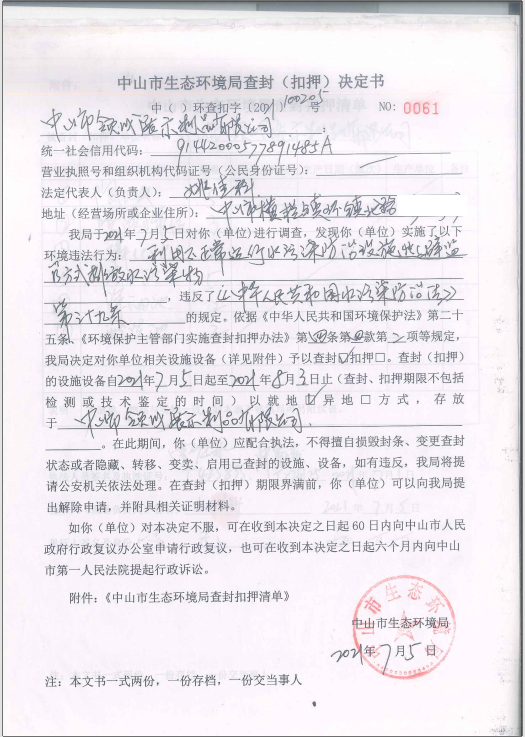 中山市生态环境局查封（扣押）决定书
中（ ）环查扣字〔2021〕100205号 NO: 0061
中山市领以展示制品有限公司
统一社会信用代码：91442000577891485A
营业执照号和组织机构代码证号（公民身份证号）：
法定代表人（负责人）：
地址（经营场所或企业住所）：中山市横栏镇环镇北路
我局于2021年7月5日对你（单位）进行调查，发现你（单位）实施了以下
环境违法行为：利用不正常运行水污染防治设施逃避监
管方式排放水污染物
，违反了《中华人民共和国水污染防治法》
第三十九条 的规定。依据《中华人民共和国环境保护法》第二十
五条、《环境保护主管部门实施查封扣押办法》第四条第 款第 项等规定，
我局决定对你单位相关设施设备（详见附件）予以查封☑扣押□。查封（扣押）
的设施设备自2021年7月5日起至2021年8月3日止（查封、扣押期限不包括
检测或技术鉴定的时间）以就地☑异地□方式，存放
于中山市领以展示制品有限公司
。在此期间，你（单位）应配合执法，不得擅自损毁封条、变更查封
状态或者隐藏、转移、变卖、启用已查封的设施、设备，如有违反，我局将提
请公安机关依法处理。在查封（扣押）期限界满前，你（单位）可以向我局提
出解除申请，并附具相关证明材料。
如你（单位）对本决定不服，可在收到本决定之日起60日内向中山市人民
政府行政复议办公室申请行政复议，也可在收到本决定之日起六个月内向中山
市第一人民法院提起行政诉讼。
附件：《中山市生态环境局查封扣押清单》
中山市生态环境局
中山市生态环境局
2021年7月5日
注：本文书一式两份，一份存档，一份交当事人